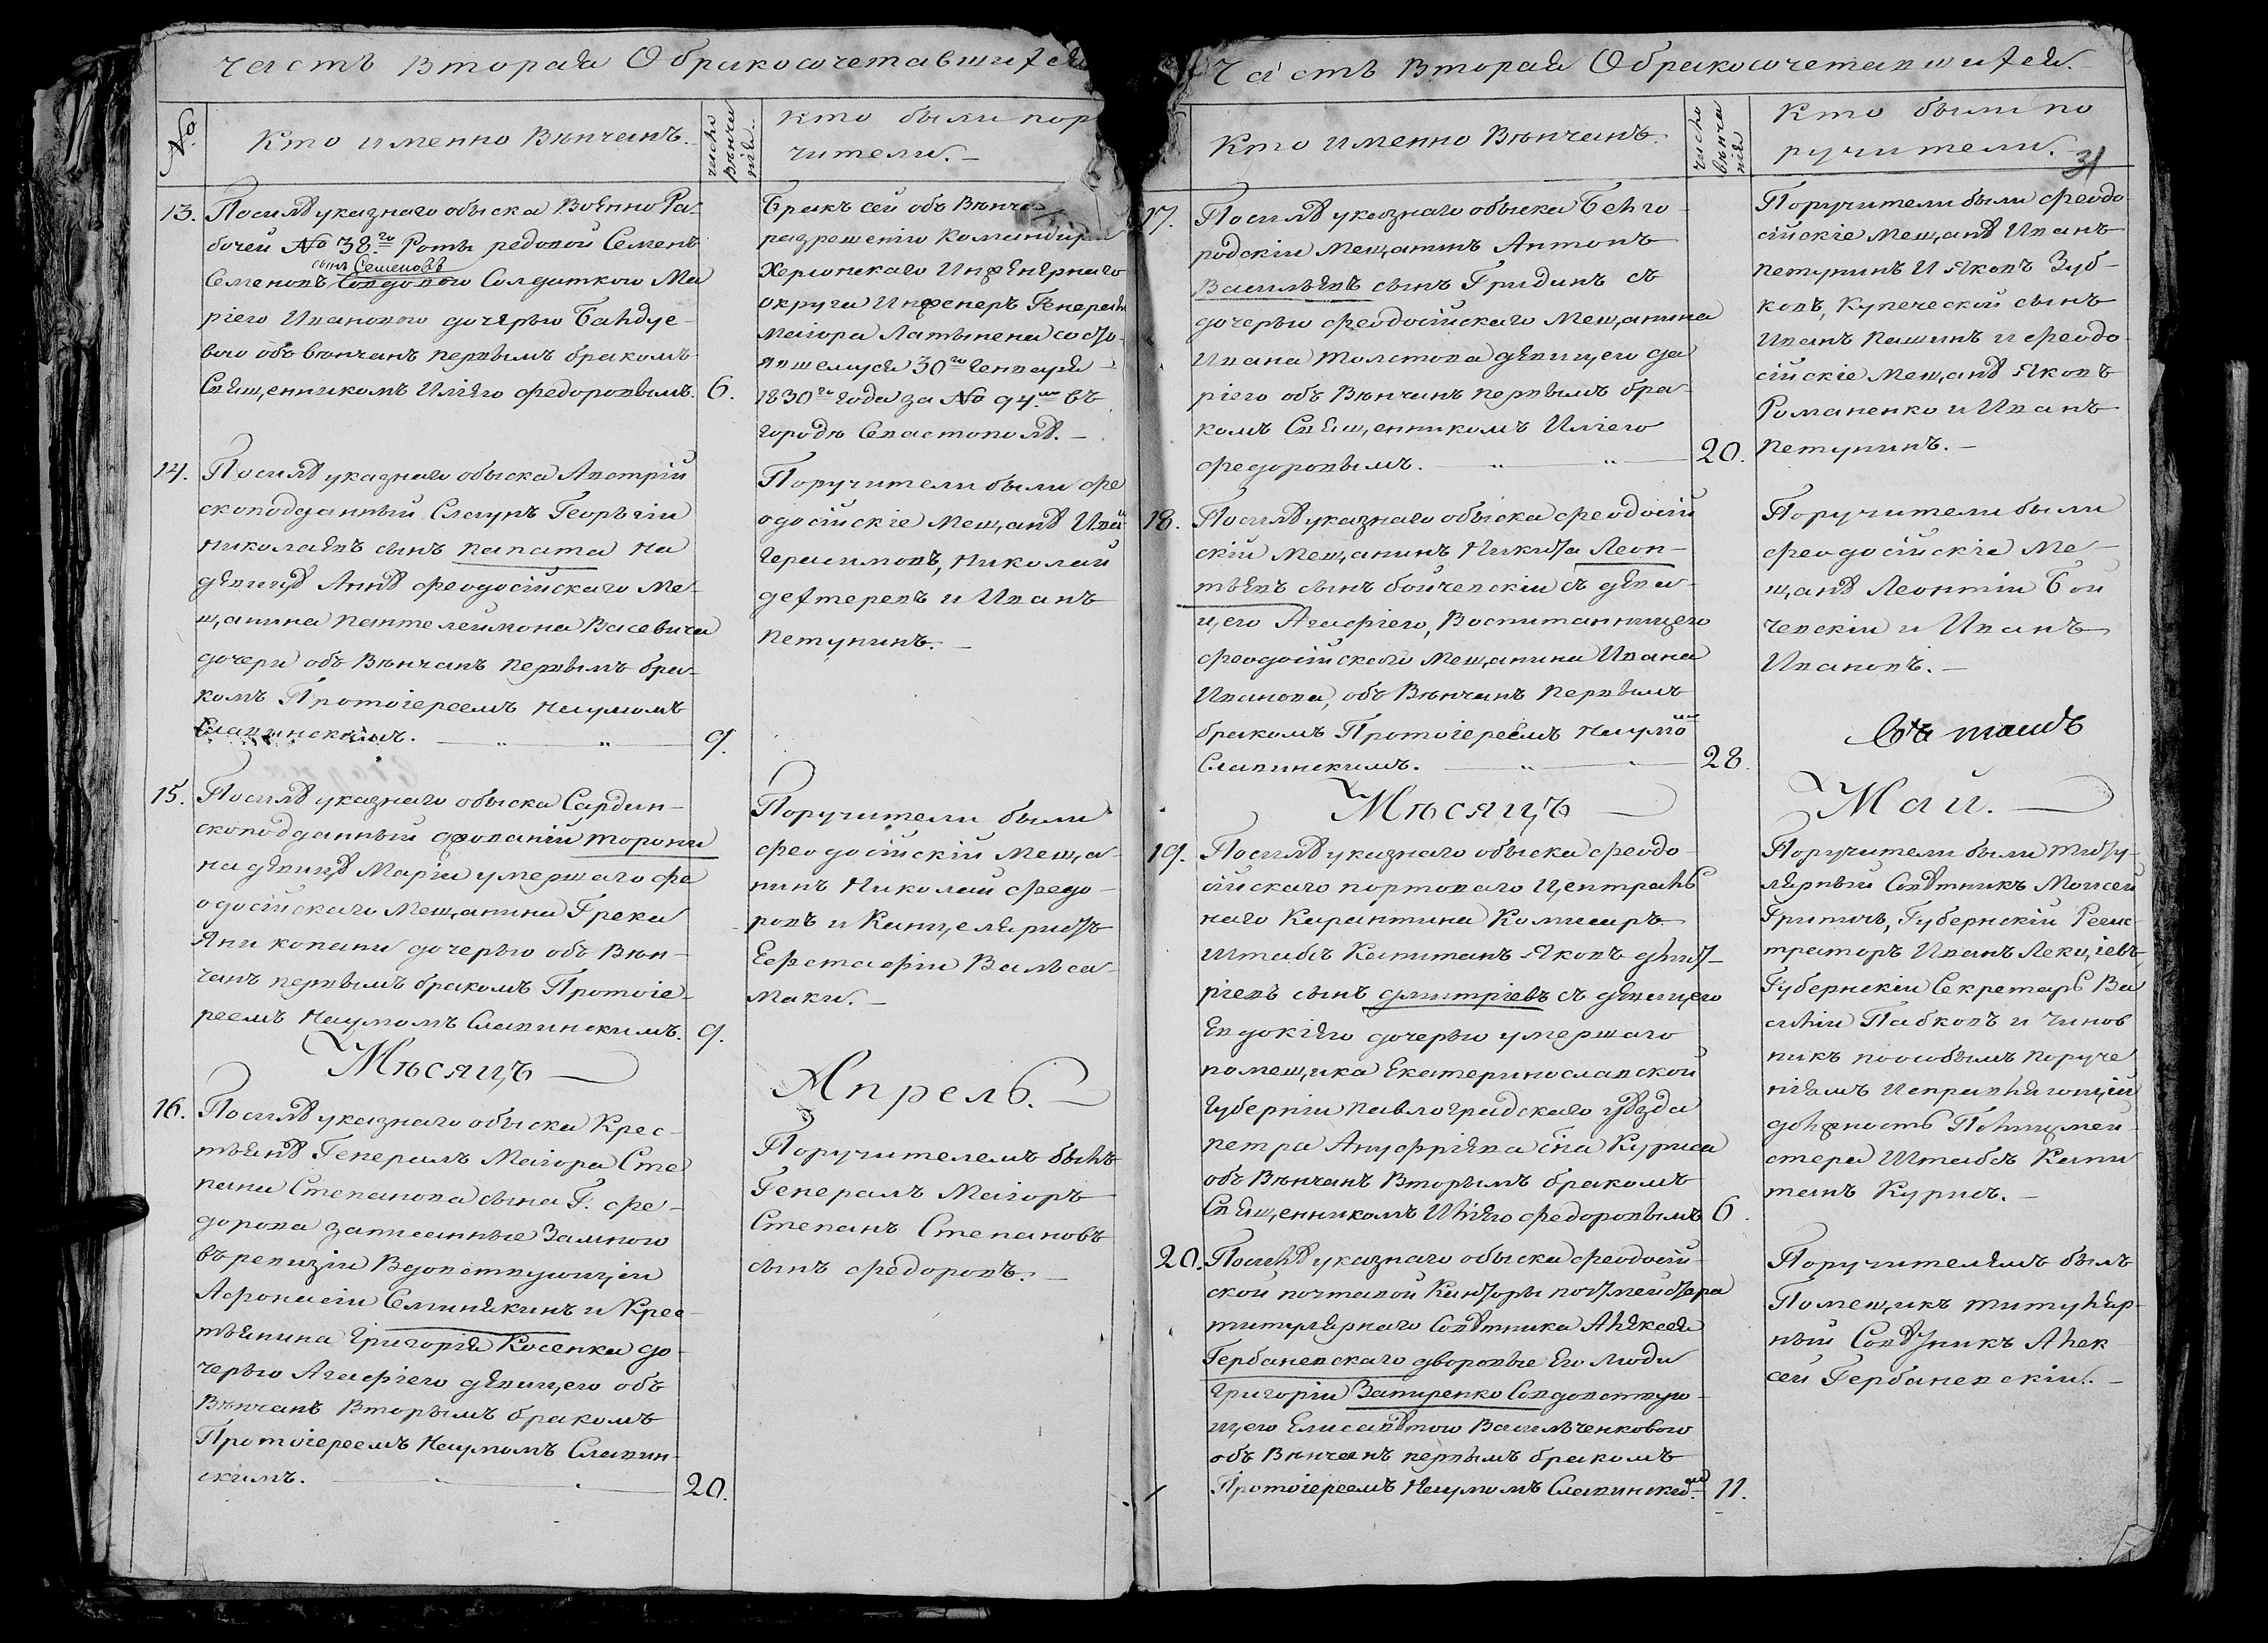 Часть Вторая О бракосочетавшихся
№
Кто именно Вѣнчанъ.
число Вѣнча нія.
Кто были пор
чители.
13.
После указнаго обыска Военно Ра-
бочей № 38.го Роты редовой Семенъ
сынъ Семеновъ
Семеновъ Солдаткою Ма
ріею Ивановою дочерью Балдуе-
вою обвѣнчанъ первымъ бракомъ
Священникомъ Иліею Федоровымъ.
6.
Бракъ сей объ Вѣнча
разрешенію Командира
Херсонскаго Инженернаго
округа Инженеръ Генерала
Маіора Латынена состо-
явшемуся 30го Генваря
1830го года за № 94.мъ въ
городѣ Севастополе.
14.
После указнаго обыска Австрій
скоподданный Слаунъ Георьгіи
Николаевъ сынъ Папата на
девице Анне феодосійскаго Ме-
щанина Пантелеимона Васевича
дочери объ Вѣнчанъ первымъ бра-
комъ Протоіереемъ Наумомъ
Славинскимъ.
9.
Поручители были фе
одосійскіе Мещане Иван
Герасимовъ, Николай
дехтеревъ и Иванъ
Петунинъ.
15.
После указнаго обыска Сардин-
скоподданный жованій торони
на девице Маріи умершаго фе
одосійскаго Мещанина Грека
Яни копани дочерью объ Вѣн-
чанъ первымъ бракомъ Протоіе-
реемъ Наумомъ Славинскимъ.
9.
Поручители были
феодосійскій Меща-
нинъ Николай федо-
ровъ и Канцеляристъ
Ефстафіи Вальса-
маки.
Мѣсяцъ
Апрель.
16.
После указнаго обыска Крес-
тьяне Генералъ Маіора Сте
пана Степанова сына Г. фе-
дорова записанные Замною
въ ревизіи Вдовствующіи
Афонасіи Семинякинъ и Крес-
тьянина Григорія Косенка до-
черью Агафіею девицею объ
Вѣнчанъ Вторымъ бракомъ
Протоіереемъ Наумомъ Славин-
скимъ.
20.
Поручителемъ былъ
Генералъ Маіоръ
Степанъ Степановъ
сынъ федоровъ.
Часть Вторая О бракосочетавшихся.
Кто именно Вѣнчанъ.
число вѣнча нія
Кто были по
ручители.
31
17.
После указнаго обыска Белго
родскіи Мещанинъ Антонъ
Васильевъ сынъ Гридинъ съ
дочерью феодосійскаго Мещанина
Ивана Толстова девицею да
ріею объ Вѣнчанъ первымъ бра-
комъ Священникомъ Иліею
федоровымъ.
20.
Поручители были феодо-
сійскіе Мещане Иванъ
петунинъ и Яковъ Зуб-
ковъ, Купеческой сынъ
Иванъ Пашинъ и феодо-
сійскіе Мещане Яковъ
Романенко и Иванъ
Петунинъ.
18.
После указнаго обыска феодосій
скій Мещанинъ Никита Леон-
тьевъ сынъ бойчевскіи съ деви-
цею Агафіею, Воспитанницею
феодосійскаго Мещанина Ивана
Иванова, объ Вѣнчанъ первымъ
бракомъ Протоіереемъ Наумо мъ
Славинскимъ.
28.
Поручители были
феодосійскіе Ме-
щане Леонтіи Бой
чевскіи и Иванъ
Ивановъ.
Мѣсяцъ
Май.
19.
После указнаго обыска феодо-
сійскаго портоваго Централь
наго Карантина Комисаръ
Штабсъ Капитанъ Яковъ дмит-
ріевъ сынъ дмитріевъ съ девицею
Евдокіею дочерью умершаго
помещика Екатеринославской
Губерніи Павлоградскаго уезда
петра Ануфріева сна Куриса
объ Вѣнчанъ Вторымъ бракомъ
Священникомъ Иліею федоровымъ
6.
Поручители были титу-
лярный Советникъ Моисей
Гритичъ, Губернскій Реис-
траторъ Иванъ Лекціевъ,
Губернскіи Секретарь Ва
силіи Пабковъ и Чинов
никъ поособымъ поруче
ніямъ Исправляющій
должность Полицмей-
стера Штабсъ Капи
танъ Курисъ.
20.
После указнаго обыска феодосій-
ской почтавой Канторы потмейстера
титулярнаго Советника Алексея
Гербаневскаго дворовые Его Люди
Григоріи Затиренко Совдовствую-
щею Елисаветою Васильченковою
объ Вѣнчанъ первымъ бракомъ
Протоіереемъ Наумомъ Славинским.
11.
Поручителямъ былъ
Помещикъ титуляр-
ный Советникъ Алек-
сей Гербаневскіи.